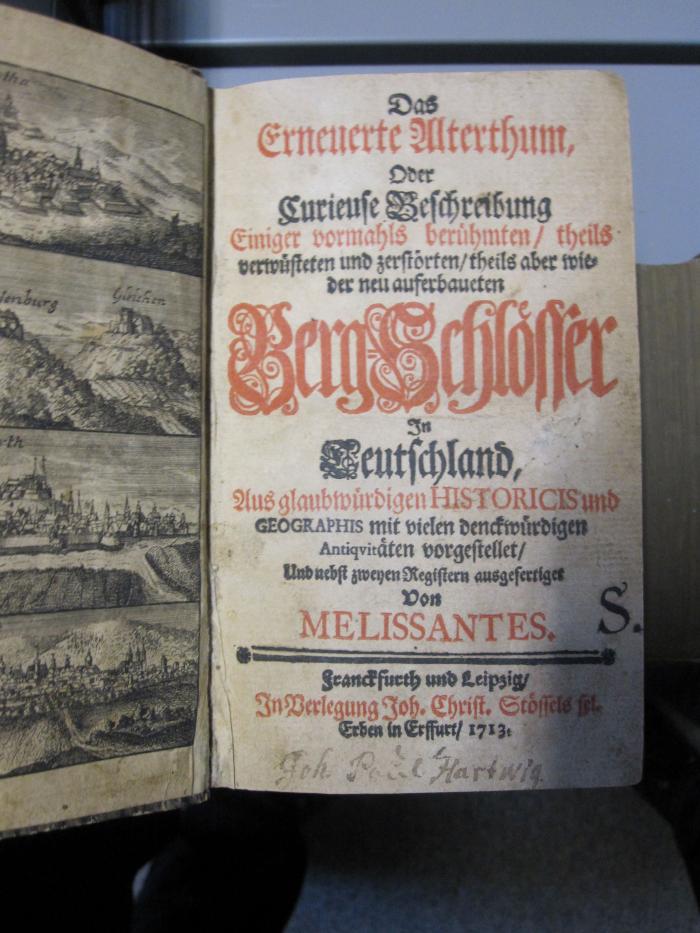 Das
Erneuerte Alterthum,
Oder
Curieuse Beschreibung
Einiger vormahls berühmten/ theils
verwüsteten und zerstörten/ theils aber wie-
der neu auferbaueten
BergSchlösser
In
Teutschland,
Aus glaubwürdigen HISTORICIS und
GEOGRAPHIS mit vielen denckwürdigen
Antiqvitäten vorgestellet/
Und nebst zweyen Registern ausgefertiget
Von
MELISSANTES.
S.
Franckfurth und Leipzig/
In Verlegung Joh. Christ. Stössels sel.
Erben in Erffurt/ 1713.
Joh Paul Hartwig
Gleichen